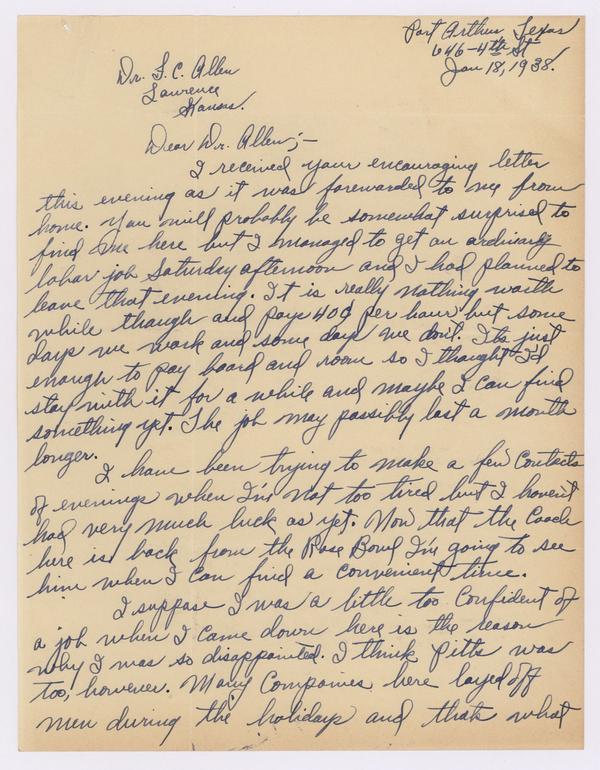 Port Arthur, Texas
646-4th St
Jan 18, 1938.
Dr. F. C. Allen
Lawrence
Kansas.
Dear Dr. Allen;-
I received your encouraging letter
this evening as it was forwarded to me from
home. You will probably be somewhat surprised to
find me here but I managed to get an ordinary
labor job Saturday afternoon and I had planned to
leave that evening. It is really nothing worth
while though and pays 40¢ per hour but some
days we work and some days we don't. Its just
enough to pay board and room so I thought I'd
stay with it for a while and maybe I can find
something yet. The job may possibly last a month
longer.
I have been trying to make a few contacts
of evenings when I'm not too tired but I haven't
had very much luck as yet. Now that the Coach
here is back from the Rose Bowl I'm going to see
him when I can find a convenient time.
I suppose I was a little too confident of
a job when I came down here is the reason
why I was so disappointed. I think Pitts was
too, however. Many Companies here layed off
men during the holidays and that what